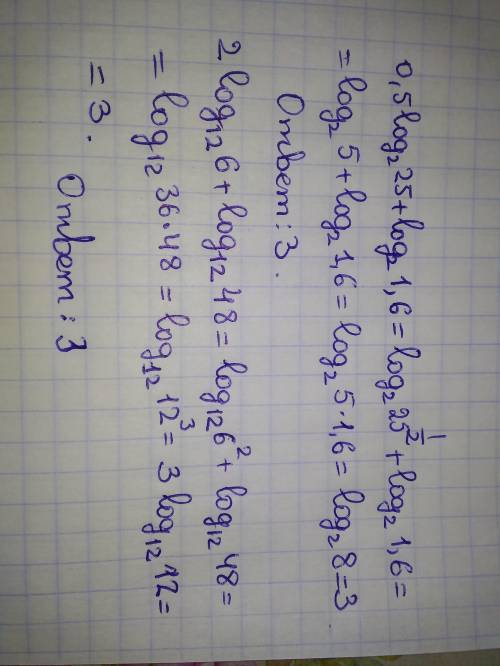 0,5log₂25+log₂1,6=log₂25^½+log₂1,6=
=log₂5+log₂1,6=log₂5·1,6=log₂8=3
Ответ: 3.
2log₁₂6+log₁₂48=log₁₂6²+log₁₂48=
=log₁₂36·48=log₁₂12³=3log₁₂12=
=3. Ответ: 3